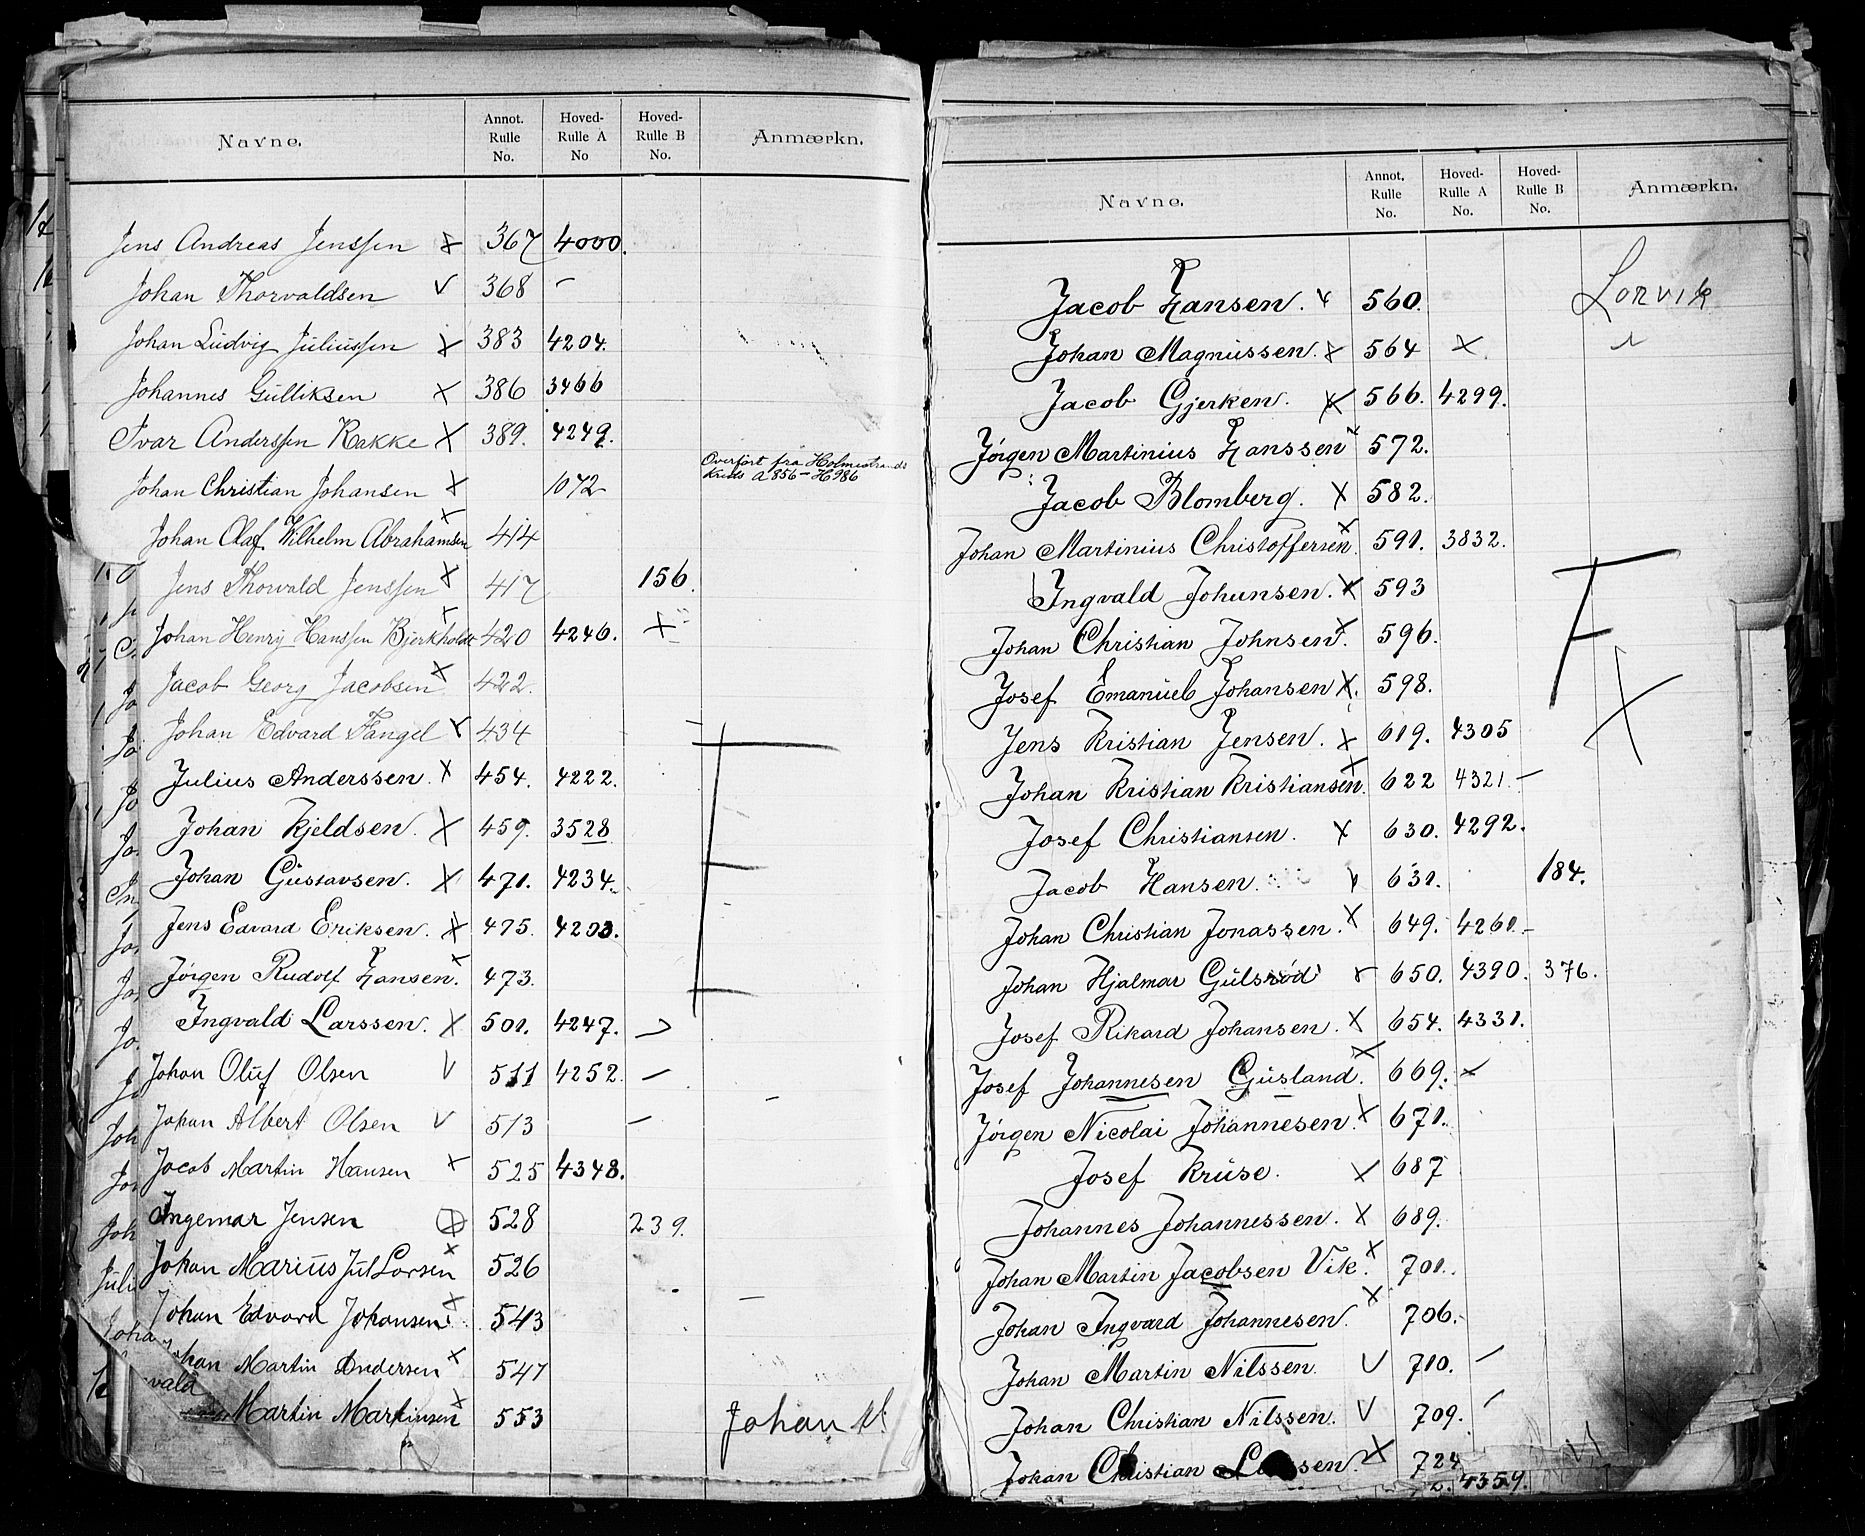 Navne. Annot. Rulle No. Hoved-Rulle A No Hoved-Rulle B No. Anmærkn.
Jens Andreas Jenssen X 367 4000.
Johan Thorvaldsen V 368 –
Johan Ludvig Juliussen X 383 4204.
Johannes Gulliksen X 386 3466
Ivar Anderssen Rakke X 389. 4249.
Johan Christian Johansen X 1072 Overført fra Holmestrands Kreds A 856 – H 986
Johan Olaf Wilhelm Abrahamsen X 414
Jens Thorvald Jenssen X 417 156.
Johan Henrij Hanssen Bjerkholdt X 420 4246. X
Jacob Georg Jacobsen X 422.
Johan Edvard Fangel X 434 –
Julius Anderssen. X 454. 4222.
Johan Kjeldsen. X 459. 3528
Johan Gustavsen. X 471. 4234.
Jens Edvard Eriksen. X 475. 4203.
Jørgen Rudolf Hansen. X 473.
Ingvald Larssen. X 501. 4247.
Johan Oluf Olsen V 511 4252. –
Johan Albert Olsen V 513 –
Jacob Martin Hansen X 525 4348.
Ingemar Jensen X 528 239.
Johan Marius Jul Larsen X 526
Johan Edvard Johansen X 543 –
Johan Martin Andersen X 547
Martin Martinsen X 553 Johan M.
Navne. Annot. Rulle No. Hoved-Rulle A No. Hoved-Rulle B No. Anmærkn.
Jacob Hansen. X 560. Lorvik
Johan Magnussen. X 564 X
Jacob Gjerken. X 566. 4299.
Jørgen Martinius Hanssen X 572.
Jacob Blomberg. X 582.
Johan Martinius Christoffersen X 591. 3832.
Ingvald Johansen. X 593
Johan Christian Johnsen. X 596.
Josef Emanuel Johansen X. 598.
Jens Kristian Jensen. X 619. 4305
Johan Kristian Kristiansen. X 622 4321. –
Josef Christiansen. X 630. 4292.
Jacob Hansen. V 631. 184.
Johan Christian Jonassen. X 649. 4260. –
Johan Hjalmar Gulsrød X 650. 4390. 376.
Josef Rikard Johansen. X 654. 4331.
Josef Johannesen Gusland. X 669. X
Jørgen Nicolai Johannesen. X 671.
Josef Kruse. X 687
Johannes Johannessen. X 689.
Johan Martin Jacobsen Vik. X 701.
Johan Ingvard Johannesen. X 706. –
Johan Martin Nilssen V 710. –
Johan Christian Nilssen. V 709. –
Johan Christian X 724
4359.